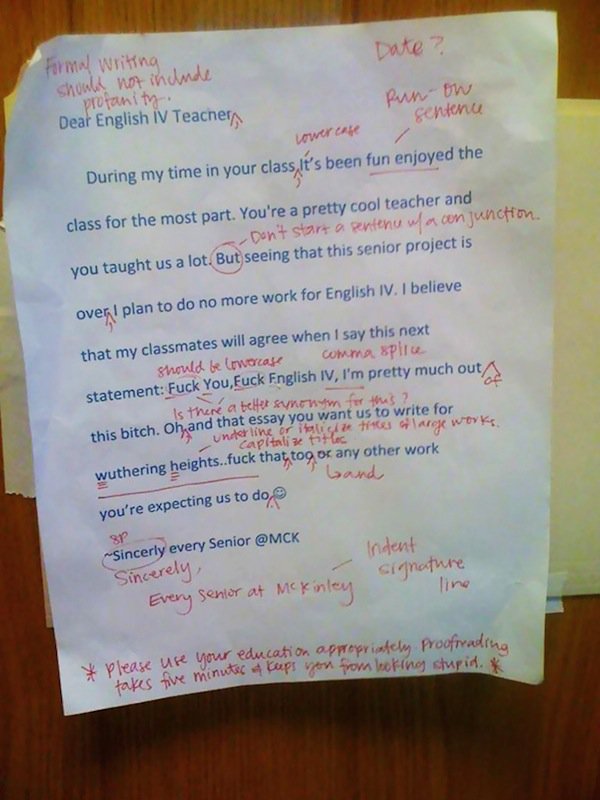 Formal writing
should not include
profanity.
Date?
Run-on
sentence
Dear English IV Teacher,
lowercase
During my time in your class,It's been fun enjoyed the
class for the most part. You're a pretty cool teacher and
Don't start a sentence w/ a conjunction.
you taught us a lot. But seeing that this senior project is
over, I plan to do no more work for English IV. I believe
that my classmates will agree when I say this next
should be lowercase
comma splice
statement: Fuck You,Fuck English IV, I'm pretty much out
of
Is there a better synonym for this?
this bitch. Oh, and that essay you want us to write for
underline or italicize titles of large works.
capitalize titles
wuthering heights..fuck that, too, or any other work
and
you're expecting us to do.☺
sp
~Sincerly every Senior @MCK
Sincerely,
Every senior at McKinley
Indent
signature
line
* Please use your education appropriately. Proofreading
takes five minutes & keeps you from looking stupid. *